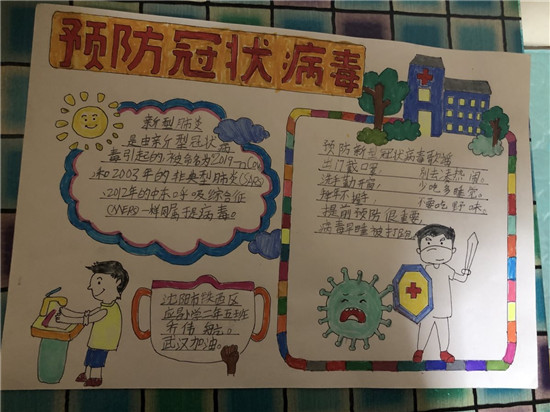 预防冠状病毒
新型肺炎
是由新型冠状病
毒引起的,被命名为2019-nCoV
和2003年的非典型肺炎(SARS)
2012年的中东呼吸综合征
(MERS)一样同属冠病毒。
预防新型冠状病毒歌谣
出门戴口罩, 别去凑热闹,
洗手勤开窗, 少吃多睡觉。
种 不 , 不要吃野味,
提前预防很重要,
病毒早晚被打跑。
沈阳市铁西区
应昌小学二年五班
乔伟
武汉加油。